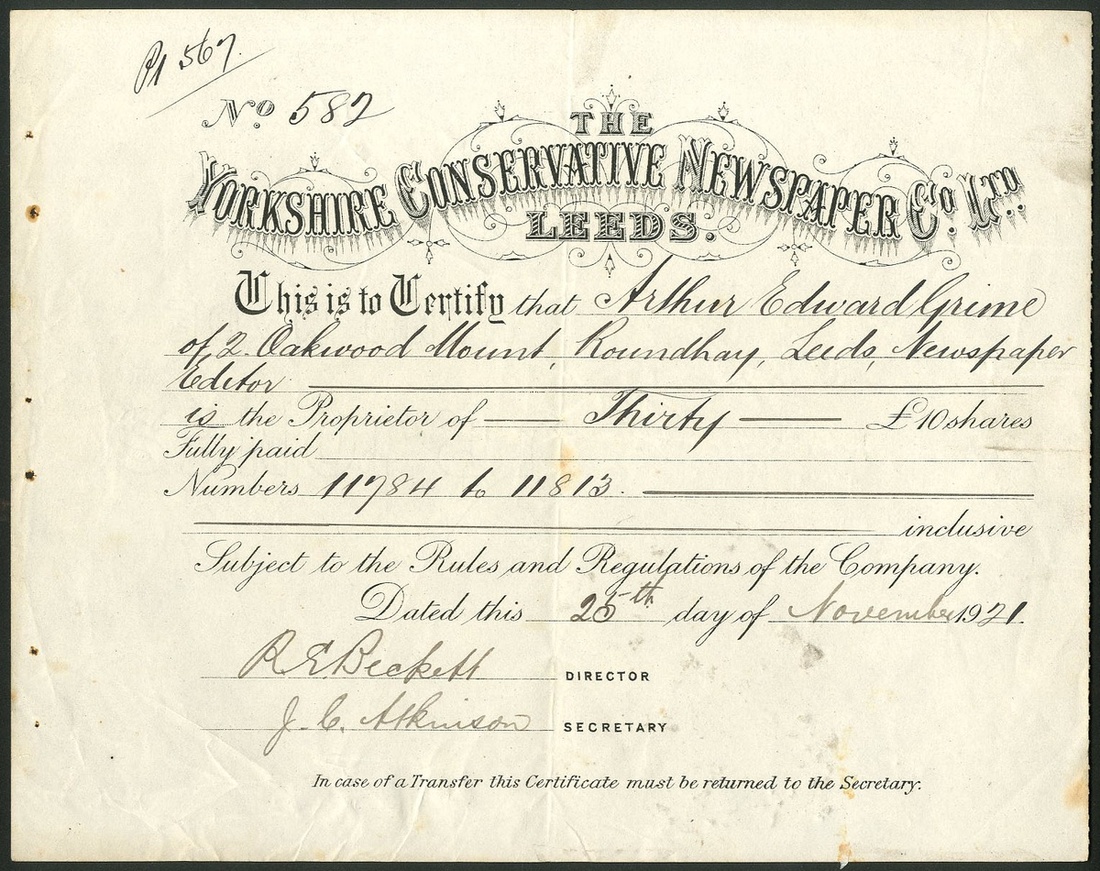 P1 567.
No. 582
THE
YORKSHIRE CONSERVATIVE NEWSPAPER Co. LTD.
LEEDS.
This is to Certify that Arthur Edward Grime
of 2. Oakwood Mount, Roundhay, Leeds, Newspaper
Editor
is the Proprietor of Thirty £10 shares
Fully paid
Numbers 11784 to 11813.
inclusive
Subject to the Rules and Regulations of the Company.
Dated this 25th day of November 1921.
R E Beckett DIRECTOR
J. C. Atkinson SECRETARY
In case of a Transfer this Certificate must be returned to the Secretary.